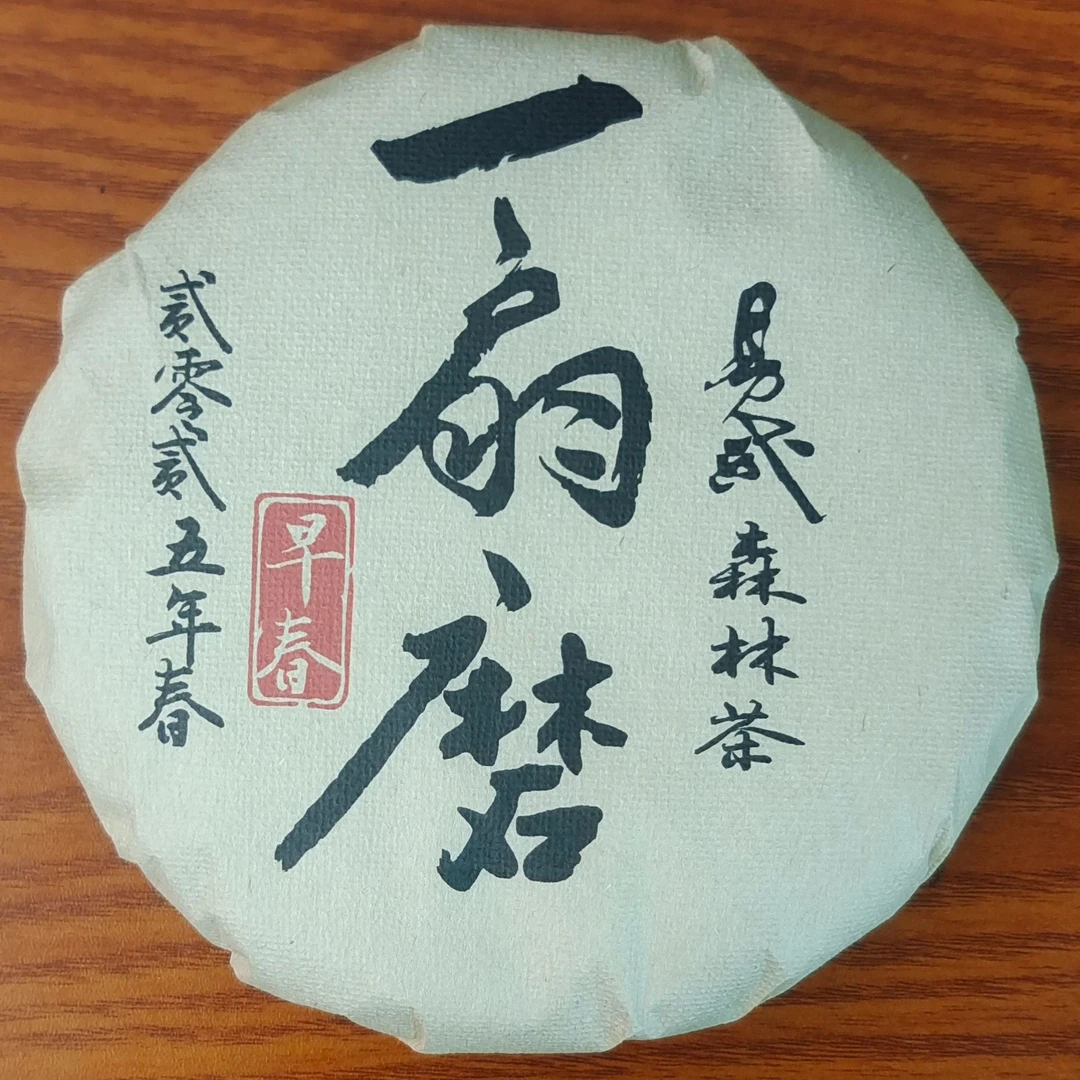 易武森林茶
一扇磨
早春
贰零贰五年春